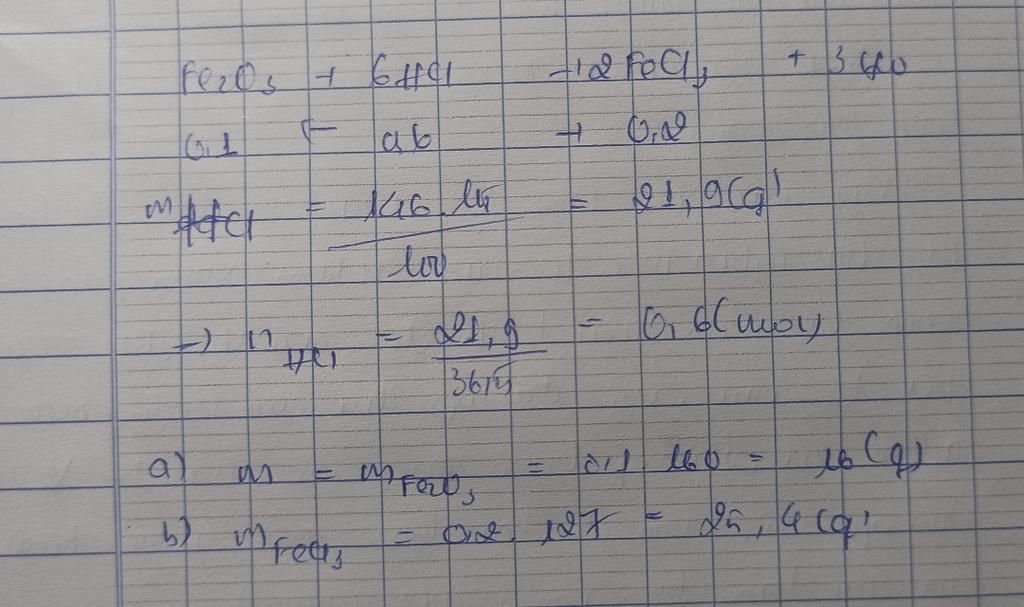 Fe2O3 + 6HCl → 2FeCl3 + 3H2O
0,1 ← 0,6 → 0,2
mHCl = 146.15/100 = 21,9(g)
→ nHCl = 21,9/36,5 = 0,6(mol)
a) m = mFe2O3 = 0,1 160 = 16(g)
b) mFeCl3 = 0,2 127 = 25,4(g)